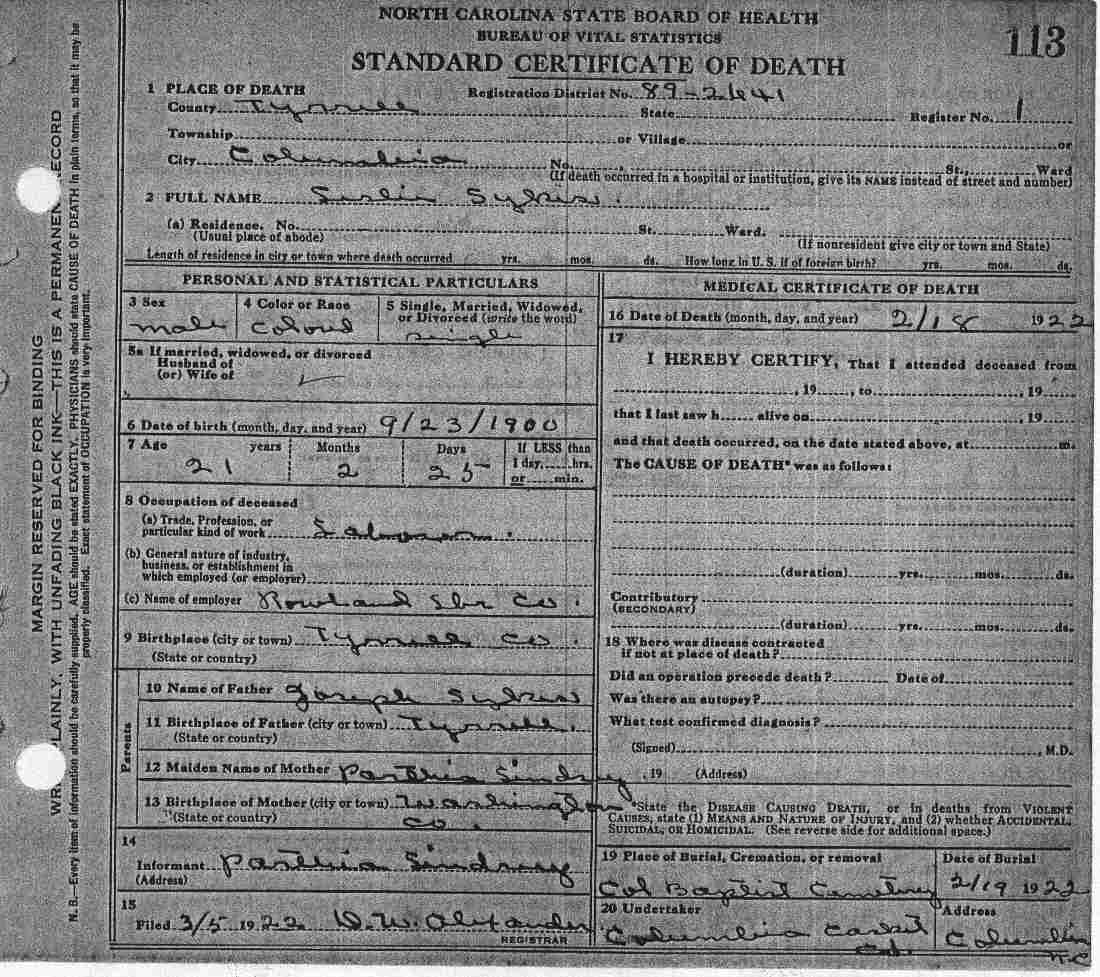 NORTH CAROLINA STATE BOARD OF HEALTH
BUREAU OF VITAL STATISTICS
113
STANDARD CERTIFICATE OF DEATH
1 PLACE OF DEATH Registration District No. 89-2641
County Tyrrell State Register No. 1
Township or Village or
City Columbia No. , St., Ward
(If death occurred in a hospital or institution, give its NAME instead of street and number)
2 FULL NAME Sykes
(a) Residence. No. St. Ward.
(Usual place of abode) (If nonresident give city or town and State)
Length of residence in city or town where death occurred yrs. mos. ds. How long in U. S. if of foreign birth? yrs. mos. ds.
PERSONAL AND STATISTICAL PARTICULARS
3 Sex
male
4 Color or Race
Colored
5 Single, Married, Widowed, or Divorced (write the word)
single
5a If married, widowed, or divorced
Husband of
(or) Wife of
6 Date of birth (month, day, and year) 9/23/1900
7 Age years Months Days If LESS than
1 day, hrs.
21 2 25 or min.
8 Occupation of deceased
(a) Trade, Profession, or
particular kind of work
(b) General nature of industry,
business, or establishment in
which employed (or employer)
(c) Name of employer Rowland Lbr Co.
9 Birthplace (city or town) Tyrrell Co.
(State or country)
Parents
10 Name of Father Joseph Sykes
11 Birthplace of Father (city or town) Tyrrell.
(State or country)
12 Maiden Name of Mother
13 Birthplace of Mother (city or town) Washington
(State or country) Co.
14
Informant
(Address)
15
Filed 3/5 1922 D. W. Alexander
REGISTRAR
MEDICAL CERTIFICATE OF DEATH
16 Date of Death (month, day, and year) 2/18 1922
17
I HEREBY CERTIFY, That I attended deceased from
, 19 , to , 19
that I last saw h alive on , 19
and that death occurred, on the date stated above, at m.
The CAUSE OF DEATH* was as follows:
(duration) yrs. mos. ds.
Contributory
(SECONDARY)
(duration) yrs. mos. ds.
18 Where was disease contracted
if not at place of death?
Did an operation precede death? Date of
Was there an autopsy?
What test confirmed diagnosis?
(Signed) , M.D.
, 19 (Address)
*State the DISEASE CAUSING DEATH, or in deaths from VIOLENT
CAUSES, state (1) MEANS AND NATURE OF INJURY, and (2) whether ACCIDENTAL,
SUICIDAL, OR HOMICIDAL. (See reverse side for additional space.)
19 Place of Burial, Cremation, or removal
Col Baptist Cemetery
Date of Burial
2/19 1922
20 Undertaker
Columbia Casket
Co.
Address
Columbia
N.C
MARGIN RESERVED FOR BINDING
PLAINLY, WITH UNFADING BLACK INK—THIS IS A
N. B.—Every item of information should be carefully supplied. AGE should be stated EXACTLY. PHYSICIANS should state CAUSE OF DEATH in plain terms, so that it may be
properly classified. Exact statement of OCCUPATION is very important.